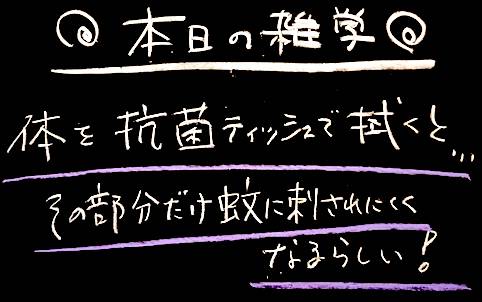 本日の雑学
体を抗菌ティッシュで拭くと...
その部分だけ蚊に刺されにくく
なるらしい!